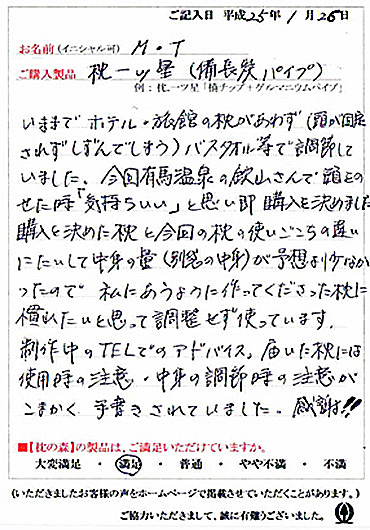 ご記入日 平成25年 1月26日
お名前(イニシャル可) M・T
ご購入製品 枕一ツ星(備長炭パイプ)
例:枕一ツ星「檜チップ+ゲルマニウムパイプ」
いままで ホテル・旅館の枕があわず(頭が固定
されずしずんでしまう)バスタオル等で調節して
いました。今回有馬温泉の欽山さんで頭をの
せた時「気持ちいい」と思い即購入を決めました
購入を決めた枕と今回の枕の使いごこちの違い
にたいして中身の量(別窓の中身)が予想より少なか
ったので 私にあうように作ってくださった枕に
慣れたいと思って調整せず使っています。
制作中のTELでのアドバイス。届いた枕には
使用時の注意・中身の調節時の注意が
こまかく手書きされていました。感謝!!
■【枕の森】の製品は、ご満足いただけていますか。
大変満足 ・ 満足 ・ 普通 ・ やや不満 ・ 不満
(いただきましたお客様の声をホームページで掲載させていただくことがあります。)
ご協力いただきまして、誠に有難うございました。